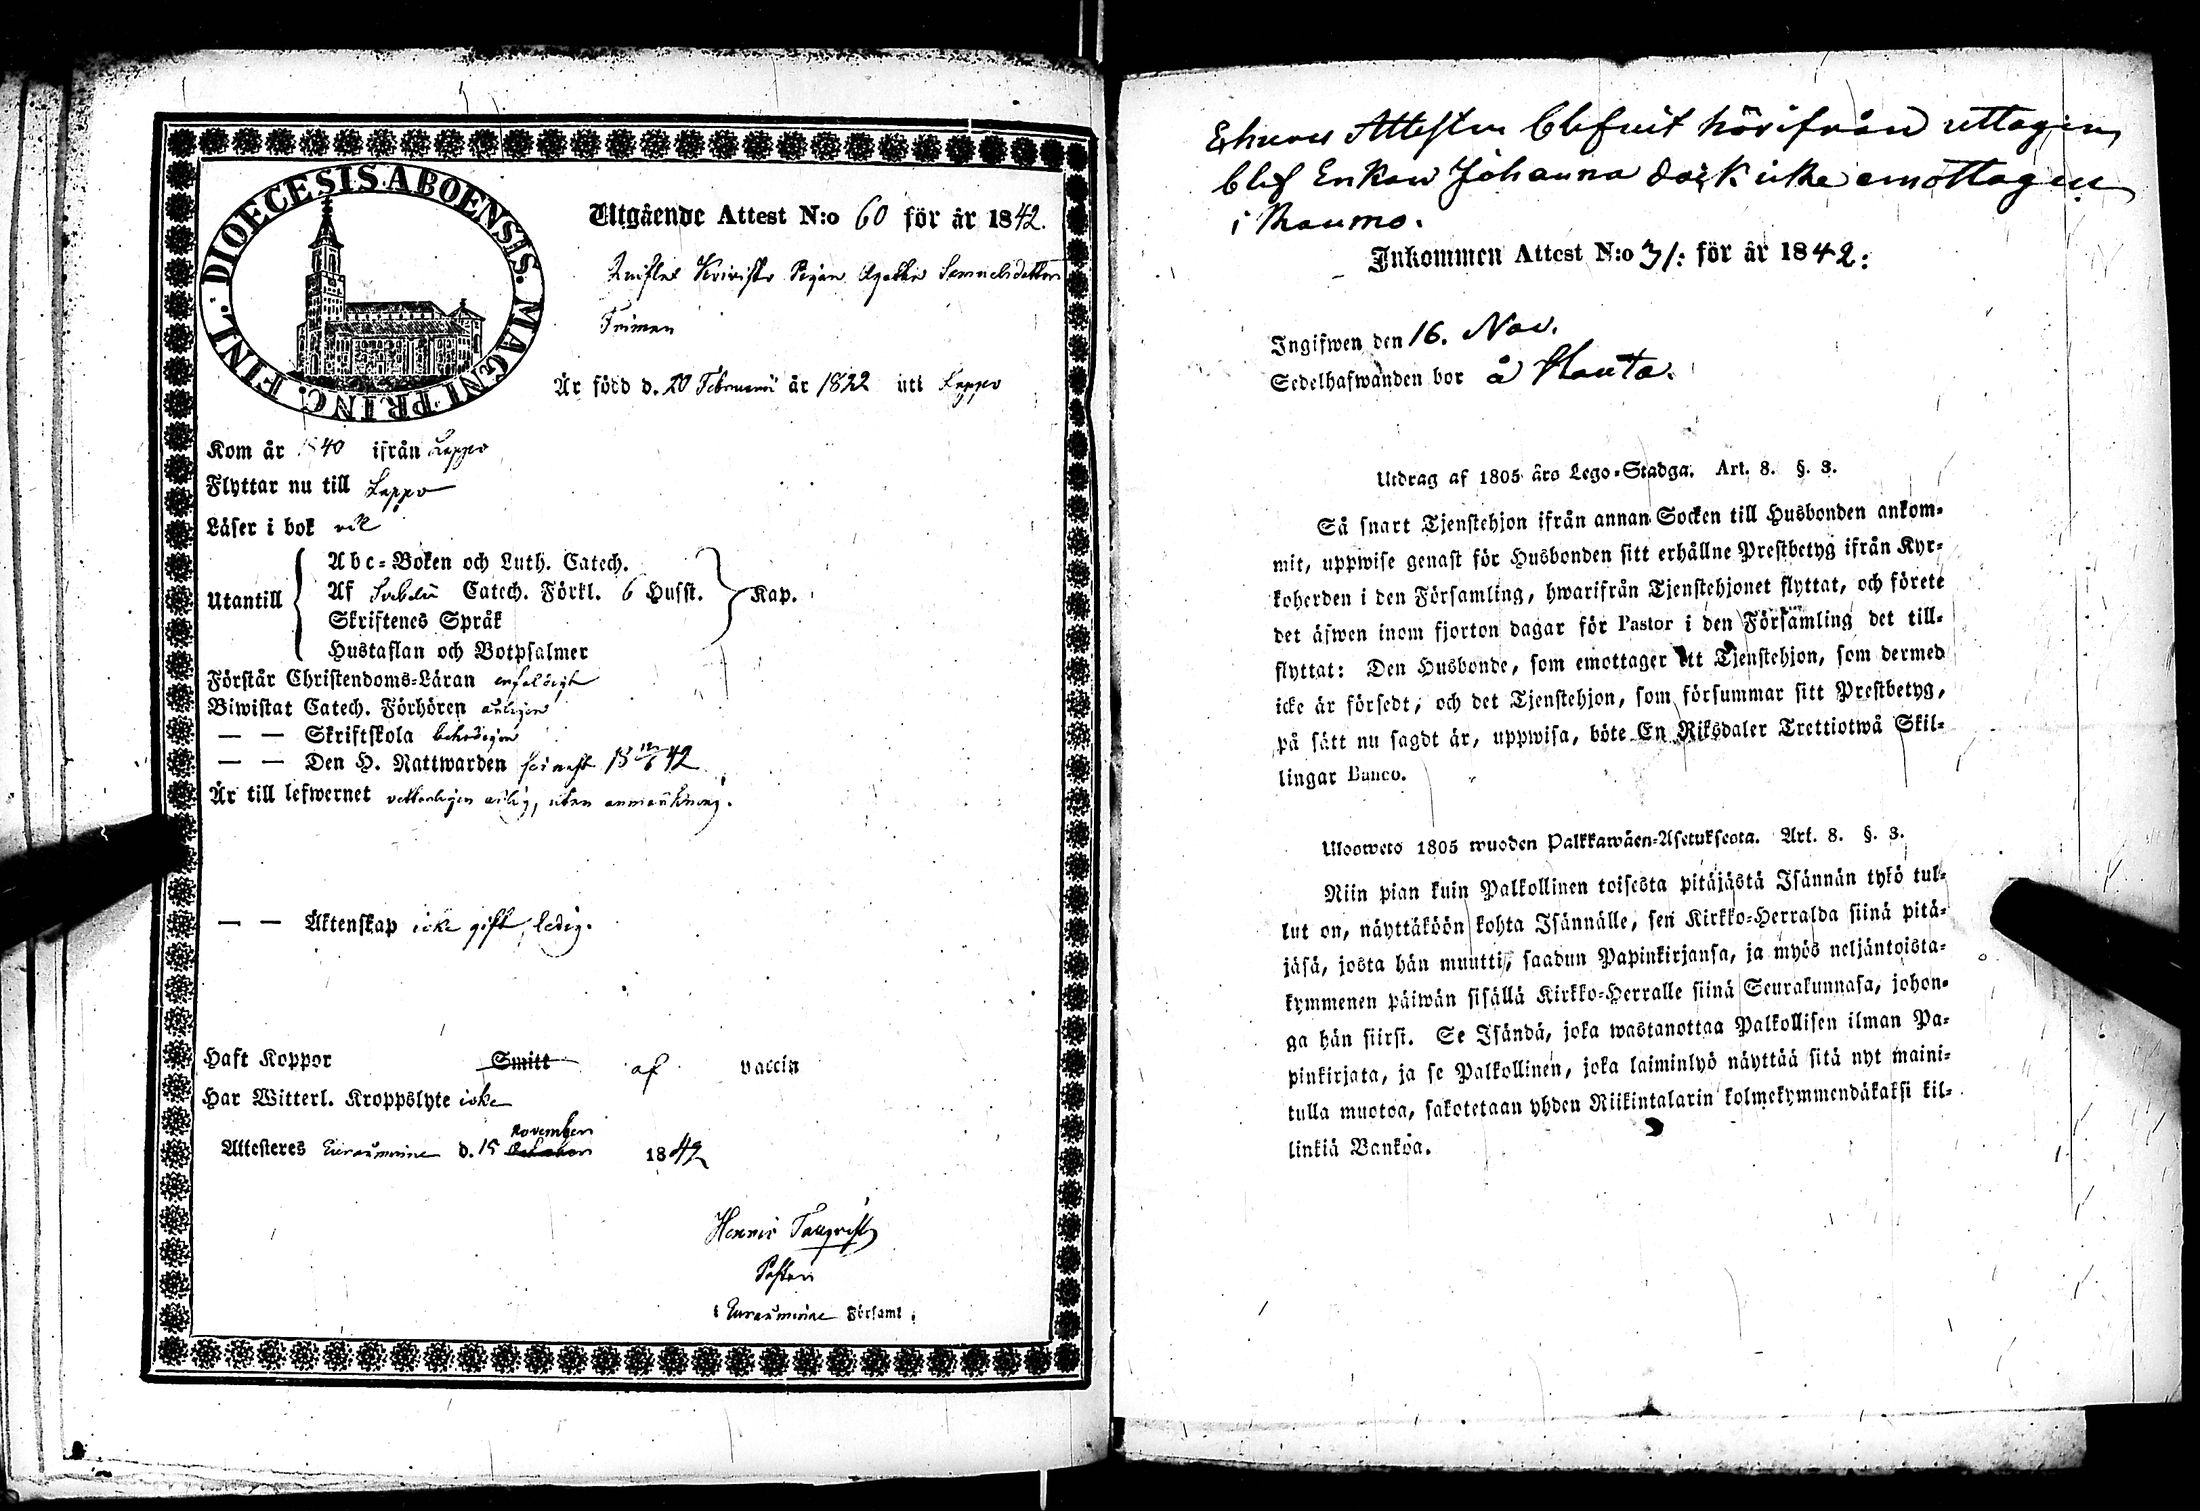 DIOECESIS ABOENSIS. MAGNI PRINC. FINL.
Utgående Attest N:o 60 för år 1842.
Pigan Agatha Samuelsdotter
Är född d. 20 Februarii år 1822 uti Lappo
Kom år 1840 ifrån Lappo
Flyttar nu till Lappo
Läser i bok väl
Utantill
Abc-Boken och Luth. Catech.
Af Svebelii Catech. Förkl. 6 Husst.
Kap.
Skriftenes Språk
Hustaflan och Botpsalmer
Förstår Christendoms-Läran enfaldigt
Biwistat Catech. Förhören årligen
— — Skriftskola behörigen
— — Den H. Nattwarden senast 42
Är till lefwernet vetterligen ärlig, utan anmärkning.
— — Äktenskap icke gift, ledig.
Haft Koppor Smitt af vaccin
Har Witterl. Kroppslyte icke
november
Attesteres Euraåminne d. 15 October 1842
Henric Tallqvist
Pastor
i Euraåminne Församl.
Ehuru Attesten blifvit härifrån uttagen,
blef Enkan Johanna dock icke emottagen
i Raumo.
Inkommen Attest N:o 31: för år 1842:
Ingifwen den 16. Nov.
Sedelhafwanden bor å
Utdrag af 1805 års Lego-Stadga. Art. 8. §. 3.
Så snart Tjenstehjon ifrån annan Socken till Husbonden ankom-
mit, uppwise genast för Husbonden sitt erhållne Prestbetyg ifrån Kyr-
koherden i den Församling, hwarifrån Tjenstehjonet flyttat, och förete
det äfwen inom fjorton dagar för Pastor i den Församling det till-
flyttat: Den Husbonde, som emottager ett Tjenstehjon, som dermed
icke är försedt, och det Tjenstehjon, som försummar sitt Prestbetyg,
på sätt nu sagdt är, uppwisa, böte En Riksdaler Trettiotwå Skil-
lingar Banco.
Ulosweto 1805 wuoden Palkkawäen-Asetuksesta. Art. 8. §. 3.
Niin pian kuin Palkollinen toisesta pitäjästä Isännän tykö tul-
lut on, näyttäköön kohta Isännälle, sen Kirkko-Herralda siinä pitä-
jäsä, josta hän muutti, saadun Papinkirjansa, ja myös neljäntoista-
kymmenen päiwän sisällä Kirkko-Herralle siinä Seurakunnasa, johon-
ga hän siirsi. Se Isändä, joka wastanottaa Palkollisen ilman Pa-
pinkirjata, ja se Palkollinen, joka laiminlyö näyttää sitä nyt maini-
tulla muotoa, sakotetaan yhden Riikintalarin kolmekymmendäkaksi kil-
linkiä Bankoa.